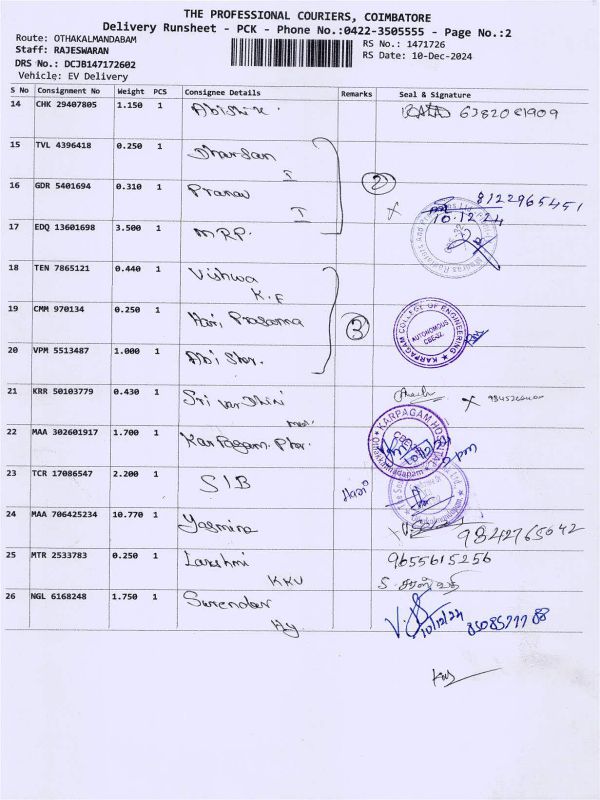 THE PROFESSIONAL COURIERS, COIMBATORE
Delivery Runsheet - PCK - Phone No.:0422-3505555 - Page No.:2
Route: OTHAKALMANDABAM
Staff: RAJESWARAN
DRS No.: DCJB147172602
Vehicle: EV Delivery
RS No.: 1471726
RS Date: 10-Dec-2024
S No Consignment No Weight PCS Consignee Details Remarks Seal & Signature
14 CHK 29407805 1.150 1 Abishik.
15 TVL 4396418 0.250 1 Dharsan I
16 GDR 5401694 0.310 1 Pranav I
2
8122965451
10.12.24
17 EDQ 13601698 3.500 1 MRP.
18 TEN 7865121 0.440 1 Vishwa K.E
19 CMM 970134 0.250 1 Hari Prasanna
3
KARPAGAM COLLEGE OF ENGINEERING
AUTONOMOUS
CBE-32.
20 VPM 5513487 1.000 1 Abi Shor.
21 KRR 50103779 0.430 1 Sri Vardhini
22 MAA 302601917 1.700 1 Karpagam. Phr.
KARPAGAM HOSPITAL
23 TCR 17086547 2.200 1 SIB
Hari
24 MAA 706425234 10.770 1 Yasmine 9842765042
25 MTR 2533783 0.250 1 Lakshmi KKV 9655615256
26 NGL 6168248 1.750 1 Surendar Hy
10/12/24